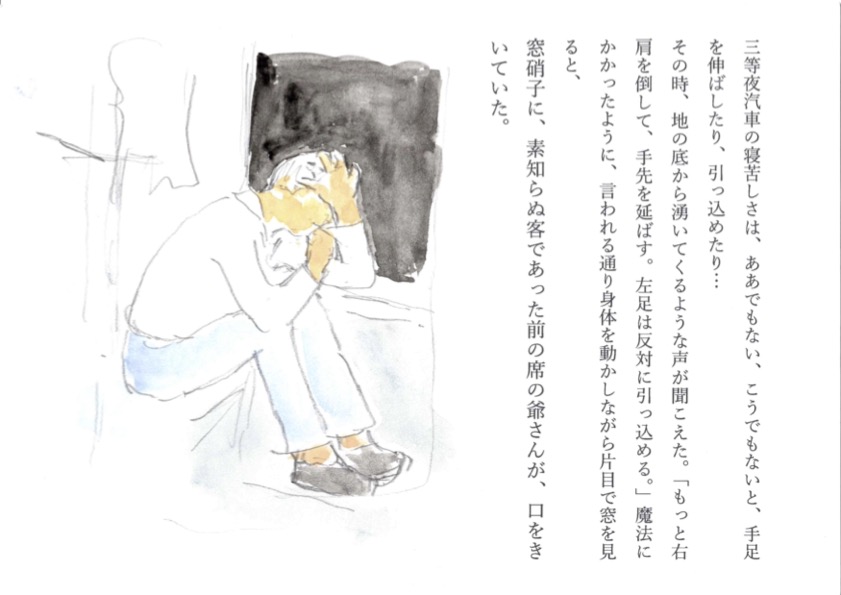 三等夜汽車の寝苦しさは、ああでもない、こうでもないと、手足
を伸ばしたり、引っ込めたり…
その時、地の底から湧いてくるような声が聞こえた。「もっと右
肩を倒して、手先を延ばす。左足は反対に引っ込める。」魔法に
かかったように、言われる通り身体を動かしながら片目で窓を見
ると、
窓硝子に、素知らぬ客であった前の席の爺さんが、口をき
いていた。